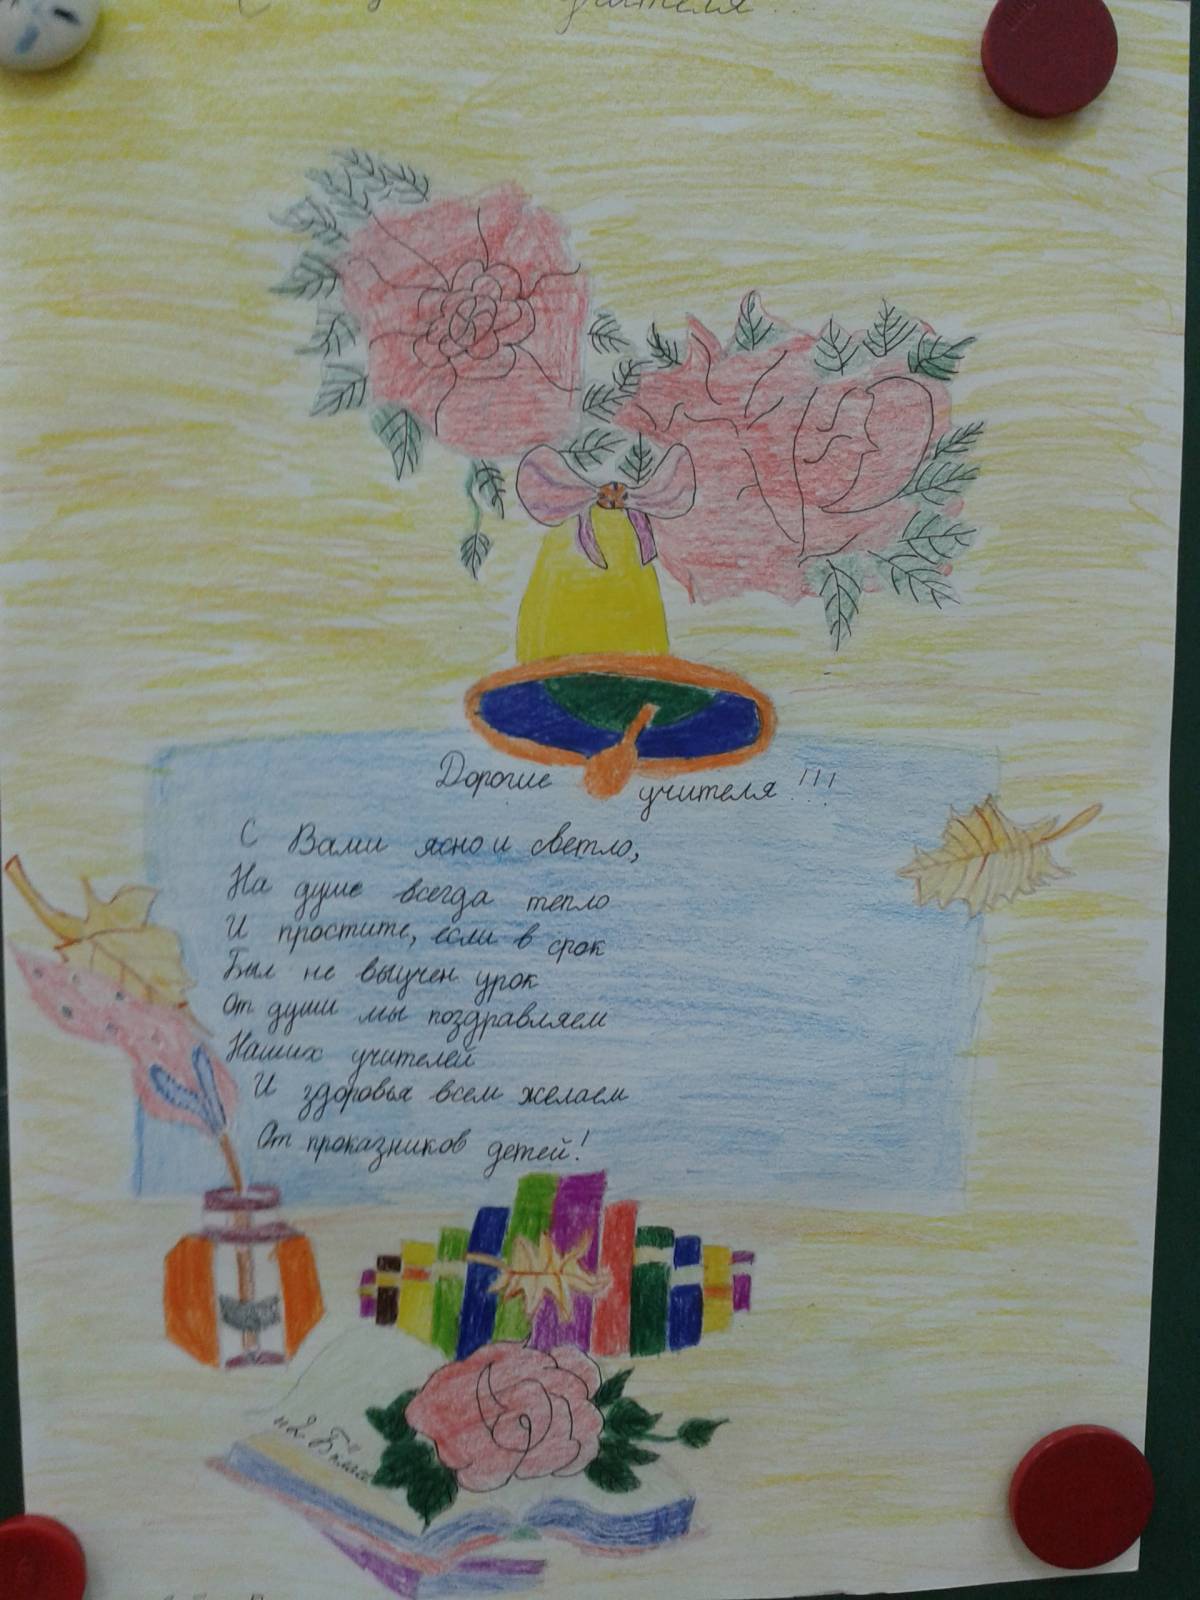 С учителя!..
Дорогие учителя!!!
С Вами ясно и светло,
На душе всегда тепло
И простите, если в срок
Был не выучен урок
От души мы поздравляем
Наших учителей
И здоровья всем желаем
От проказников детей!
"2 Б" класс